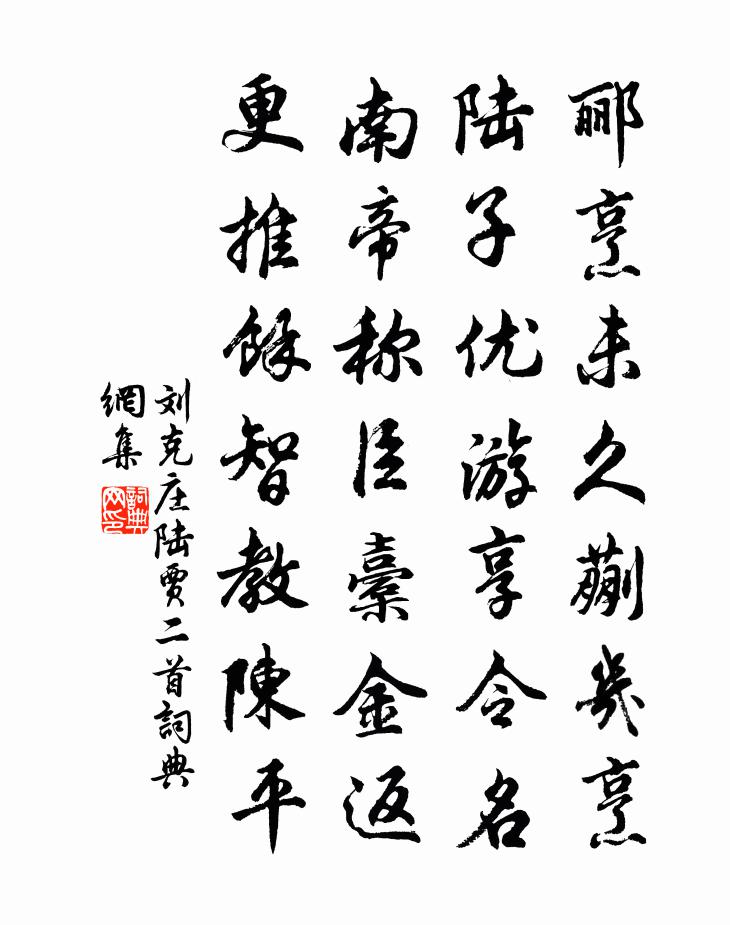 郦烹未久蒯幾烹
陆子优游享令名
南帝称臣橐金返
更推餘智教陳平
刘克庄陆贾二首詞典
網集
詞典
网印